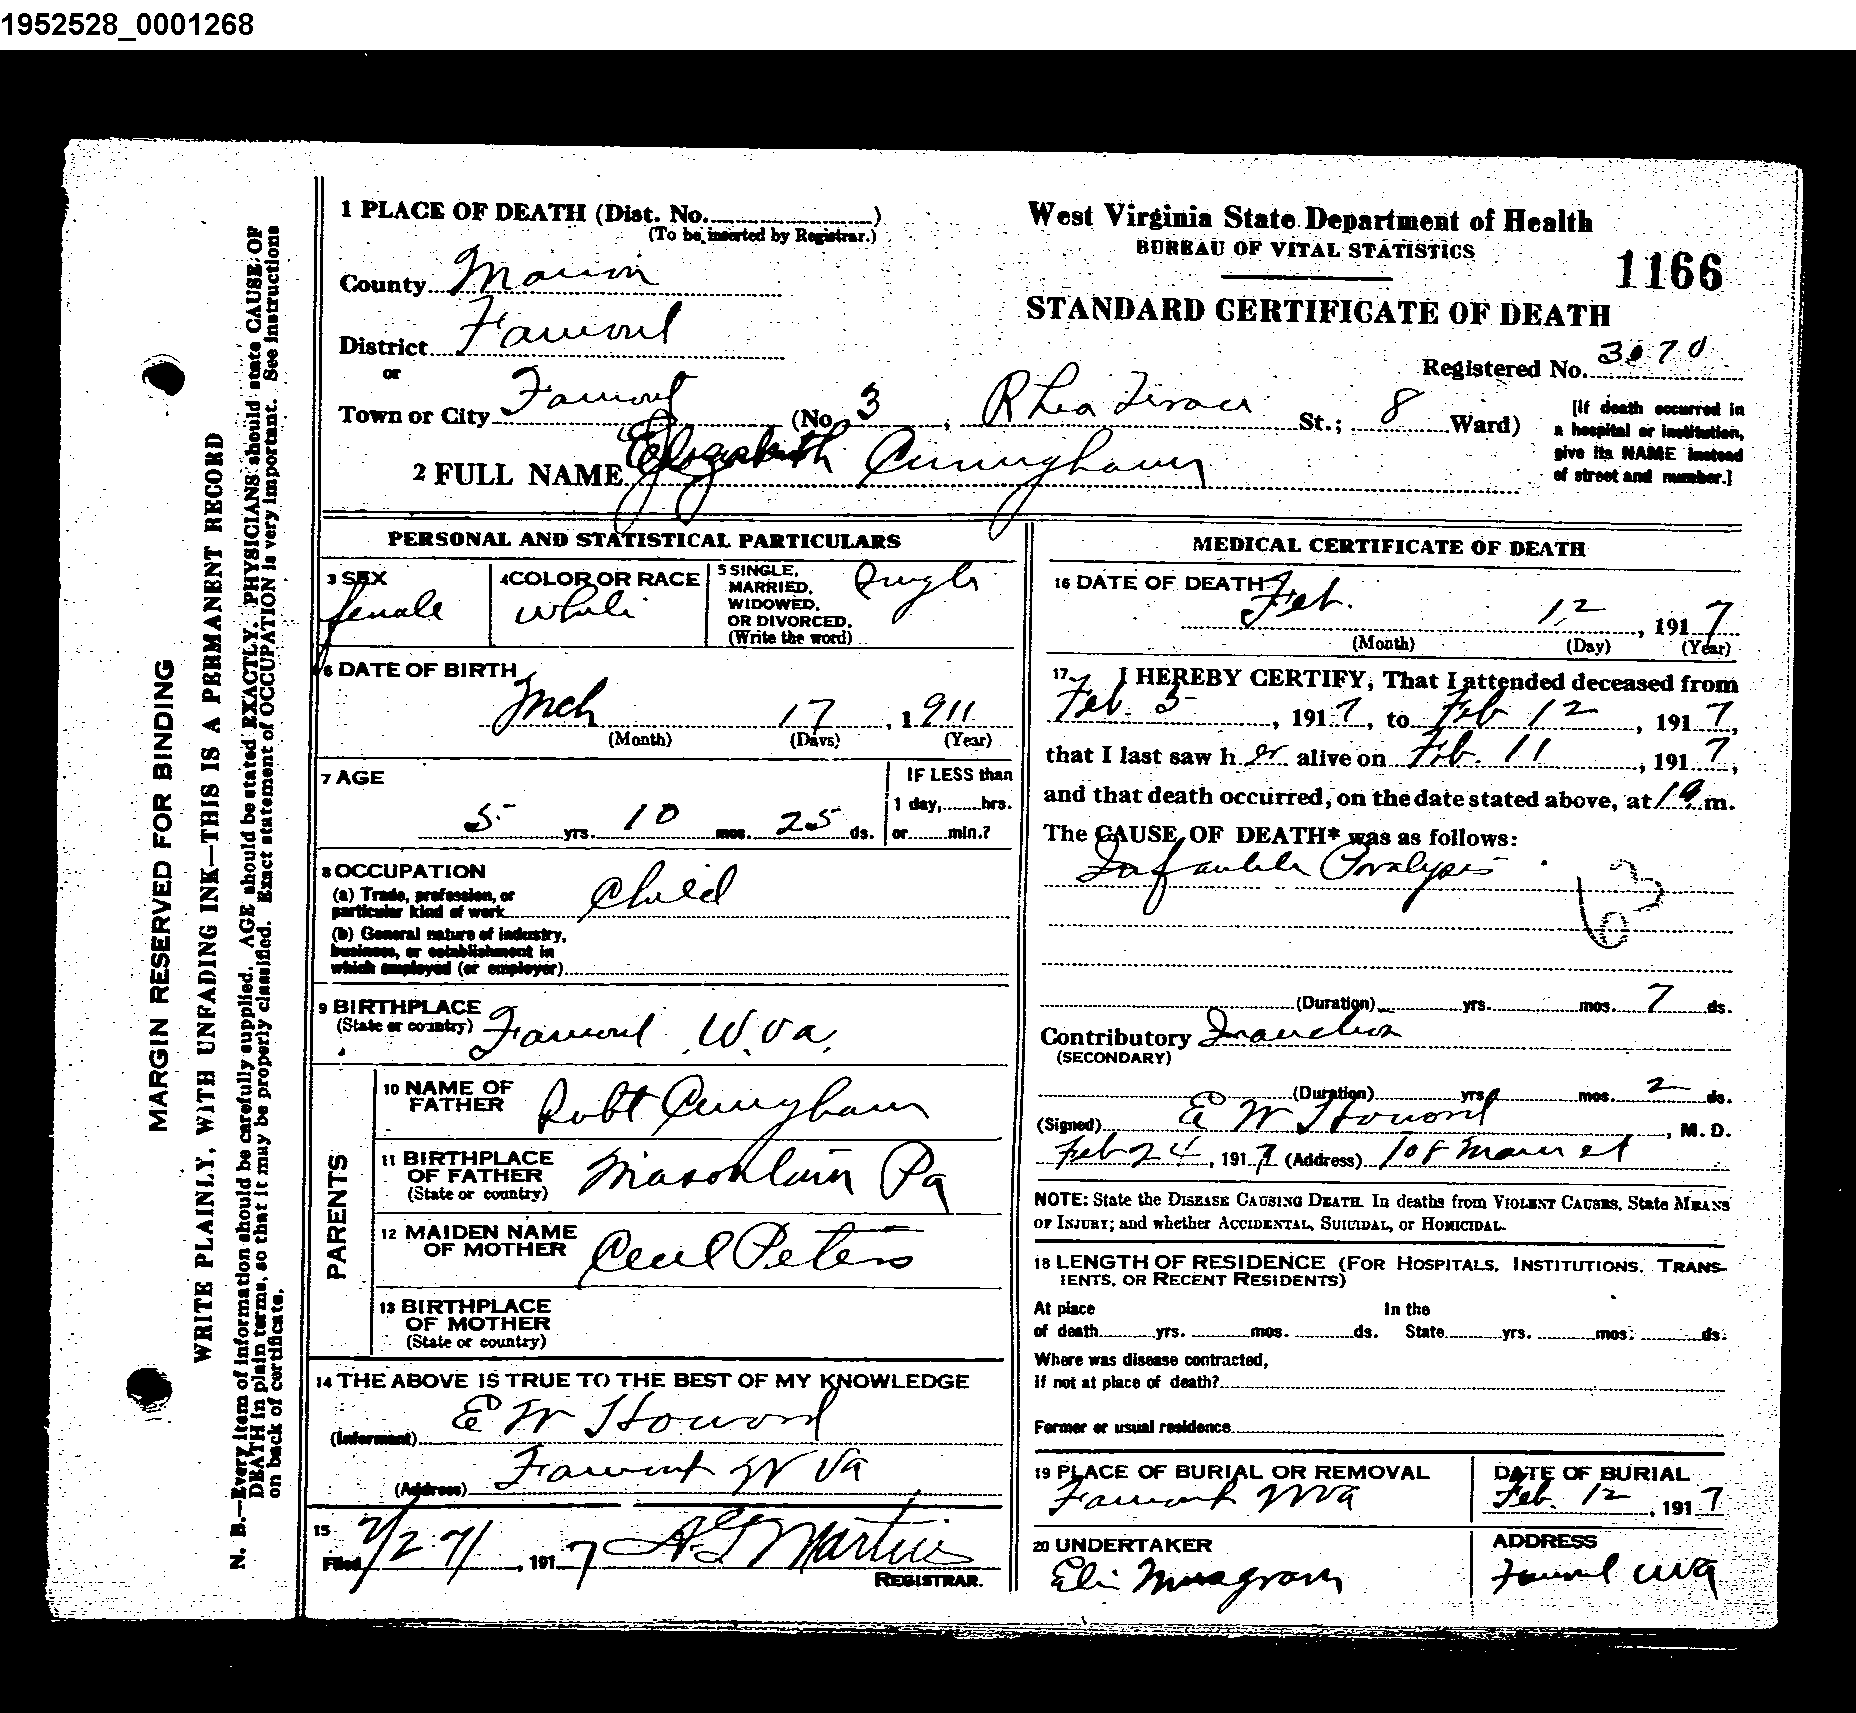 1952528_0001268
MARGIN RESERVED FOR BINDING
WRITE PLAINLY, WITH UNFADING INK—THIS IS A PERMANENT RECORD
N. B.—Every item of information should be carefully supplied. AGE should be stated EXACTLY. PHYSICIANS should state CAUSE OF
DEATH in plain terms, so that it may be properly classified. Exact statement of OCCUPATION is very important. See instructions
on back of certificate.
1 PLACE OF DEATH (Dist. No. )
(To be inserted by Registrar.)
County Marion
District Fairmont
or
Town or City Fairmont (No. 3, Rhea Terrace St.; 8 Ward)
2 FULL NAME Elizabeth Cuningham
West Virginia State Department of Health
BUREAU OF VITAL STATISTICS
1166
STANDARD CERTIFICATE OF DEATH
Registered No. 3070
[If death occurred in
a hospital or institution,
give its NAME instead
of street and number.]
PERSONAL AND STATISTICAL PARTICULARS
3 SEX
female
4 COLOR OR RACE
white
5 SINGLE,
MARRIED,
WIDOWED,
OR DIVORCED.
(Write the word)
Single
6 DATE OF BIRTH
Mch 17, 1911
(Month) (Days) (Year)
7 AGE
5 yrs. 10 mos. 25 ds.
IF LESS than
1 day, hrs.
or min.?
8 OCCUPATION
(a) Trade, profession, or
particular kind of work
Child
(b) General nature of industry,
business, or establishment in
which employed (or employer)
9 BIRTHPLACE
(State or country) Fairmont W. Va.
PARENTS
10 NAME OF
FATHER
Robt Cuningham
11 BIRTHPLACE
OF FATHER
(State or country)
Masontown Pa
12 MAIDEN NAME
OF MOTHER
Cecil Peters
13 BIRTHPLACE
OF MOTHER
(State or country)
14 THE ABOVE IS TRUE TO THE BEST OF MY KNOWLEDGE
(Informant) E W Howard
(Address) Fairmont W Va
15
Filed 2/27/, 1917 Martin
REGISTRAR.
MEDICAL CERTIFICATE OF DEATH
16 DATE OF DEATH
Feb. 12, 1917
(Month) (Day) (Year)
17 I HEREBY CERTIFY, That I attended deceased from
Feb. 5, 1917, to Feb 12, 1917,
that I last saw her alive on Feb. 11, 1917,
and that death occurred, on the date stated above, at m.
The CAUSE OF DEATH* was as follows:
Infantile Paralysis
63
(Duration) yrs. mos. 7 ds.
Contributory Inanition
(SECONDARY)
(Duration) yrs. mos. 2 ds.
(Signed) E W Howard, M. D.
Feb 24, 1917 (Address) 108 Main st
NOTE: State the DISEASE CAUSING DEATH. In deaths from VIOLENT CAUSES, State MEANS
OF INJURY; and whether ACCIDENTAL, SUICIDAL, or HOMICIDAL.
18 LENGTH OF RESIDENCE (FOR HOSPITALS, INSTITUTIONS, TRANS-
IENTS, OR RECENT RESIDENTS)
At place In the
of death yrs. mos. ds. State yrs. mos. ds.
Where was disease contracted,
if not at place of death?
Former or usual residence
19 PLACE OF BURIAL OR REMOVAL
Fairmont W Va
DATE OF BURIAL
Feb. 12, 1917
20 UNDERTAKER
Musgrave
ADDRESS
Fairmont W Va